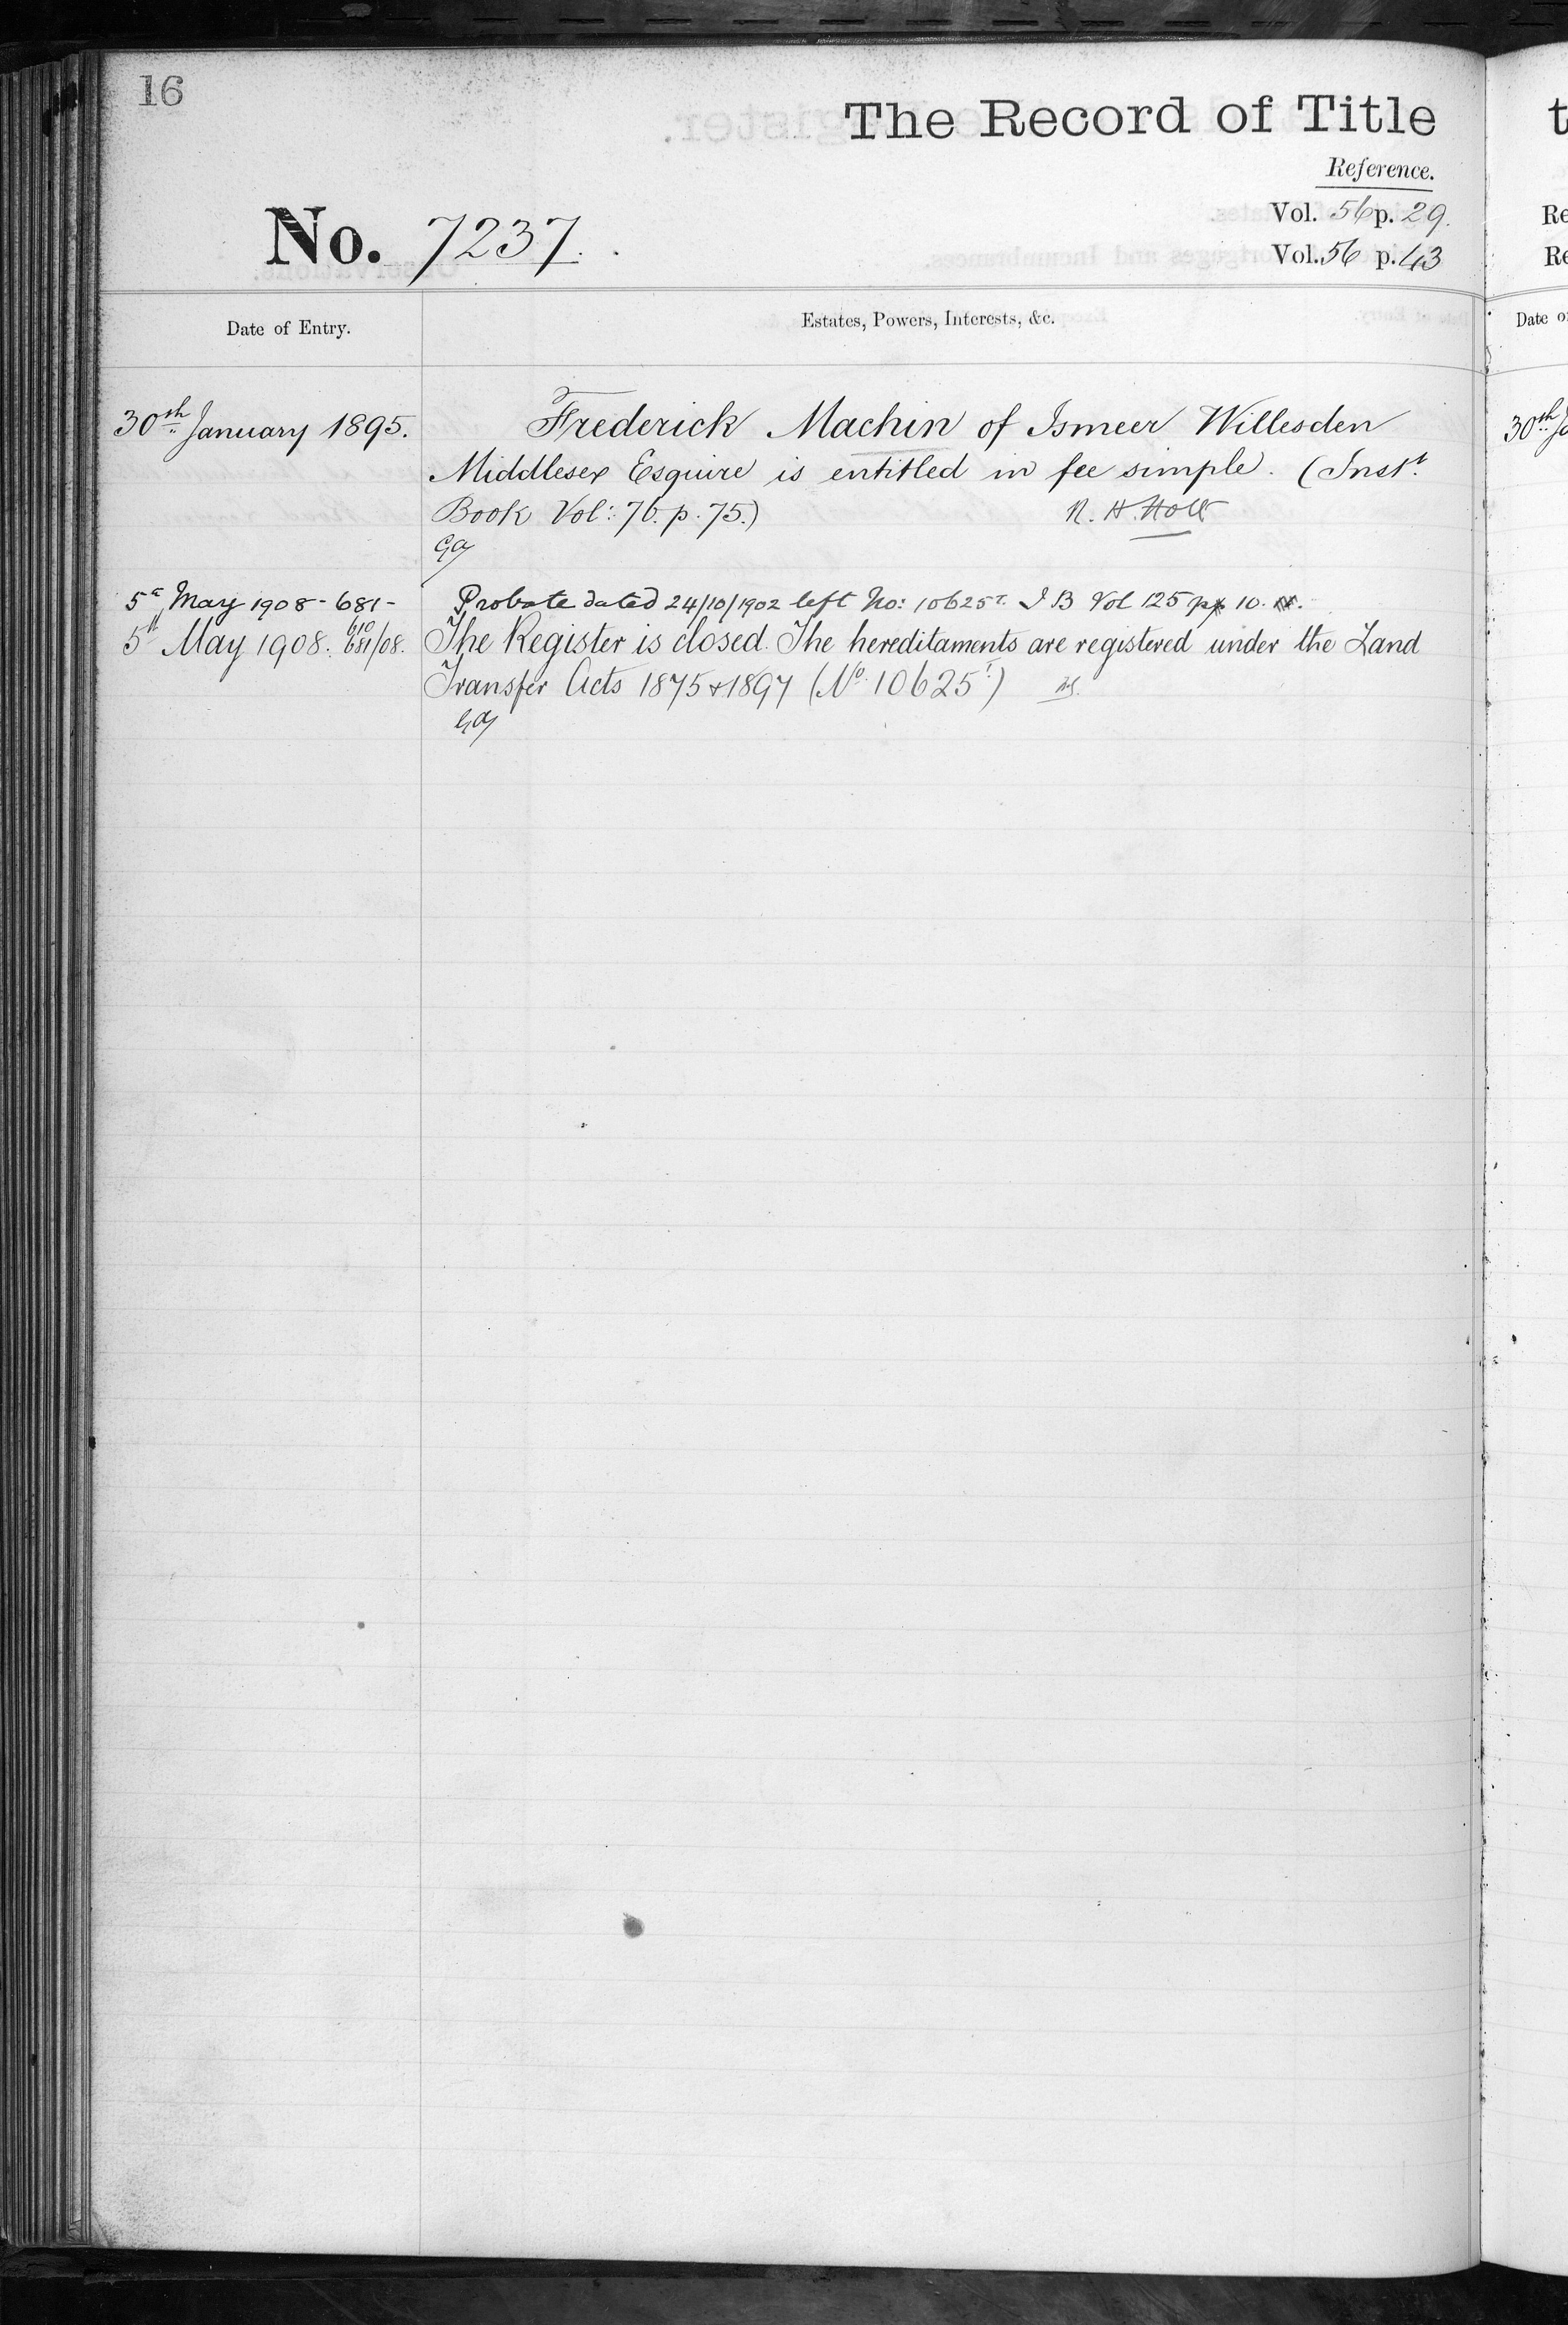 16
The Record of Title
Reference.
No. 7237.
Vol. 56 p. 29.
Vol. 56 p. 43
Date of Entry.
Estates, Powers, Interests, &c.
30th January 1895.
Frederick Machin of Ismeer Willesden
Middlesex Esquire is entitled in fee simple. (Inst.
Book Vol: 76. p. 75.) R. H. Holt
GA
5th May 1908 - 681 -
Probate dated 24/10/1902 left No: 10625T. I B Vol 125 pp 10.
5th May 1908. 681/08.
The Register is closed. The hereditaments are registered under the Land
Transfer Acts 1875 & 1897 (No. 10625T)
GA
t
Re
Re
Date o
30th Ja